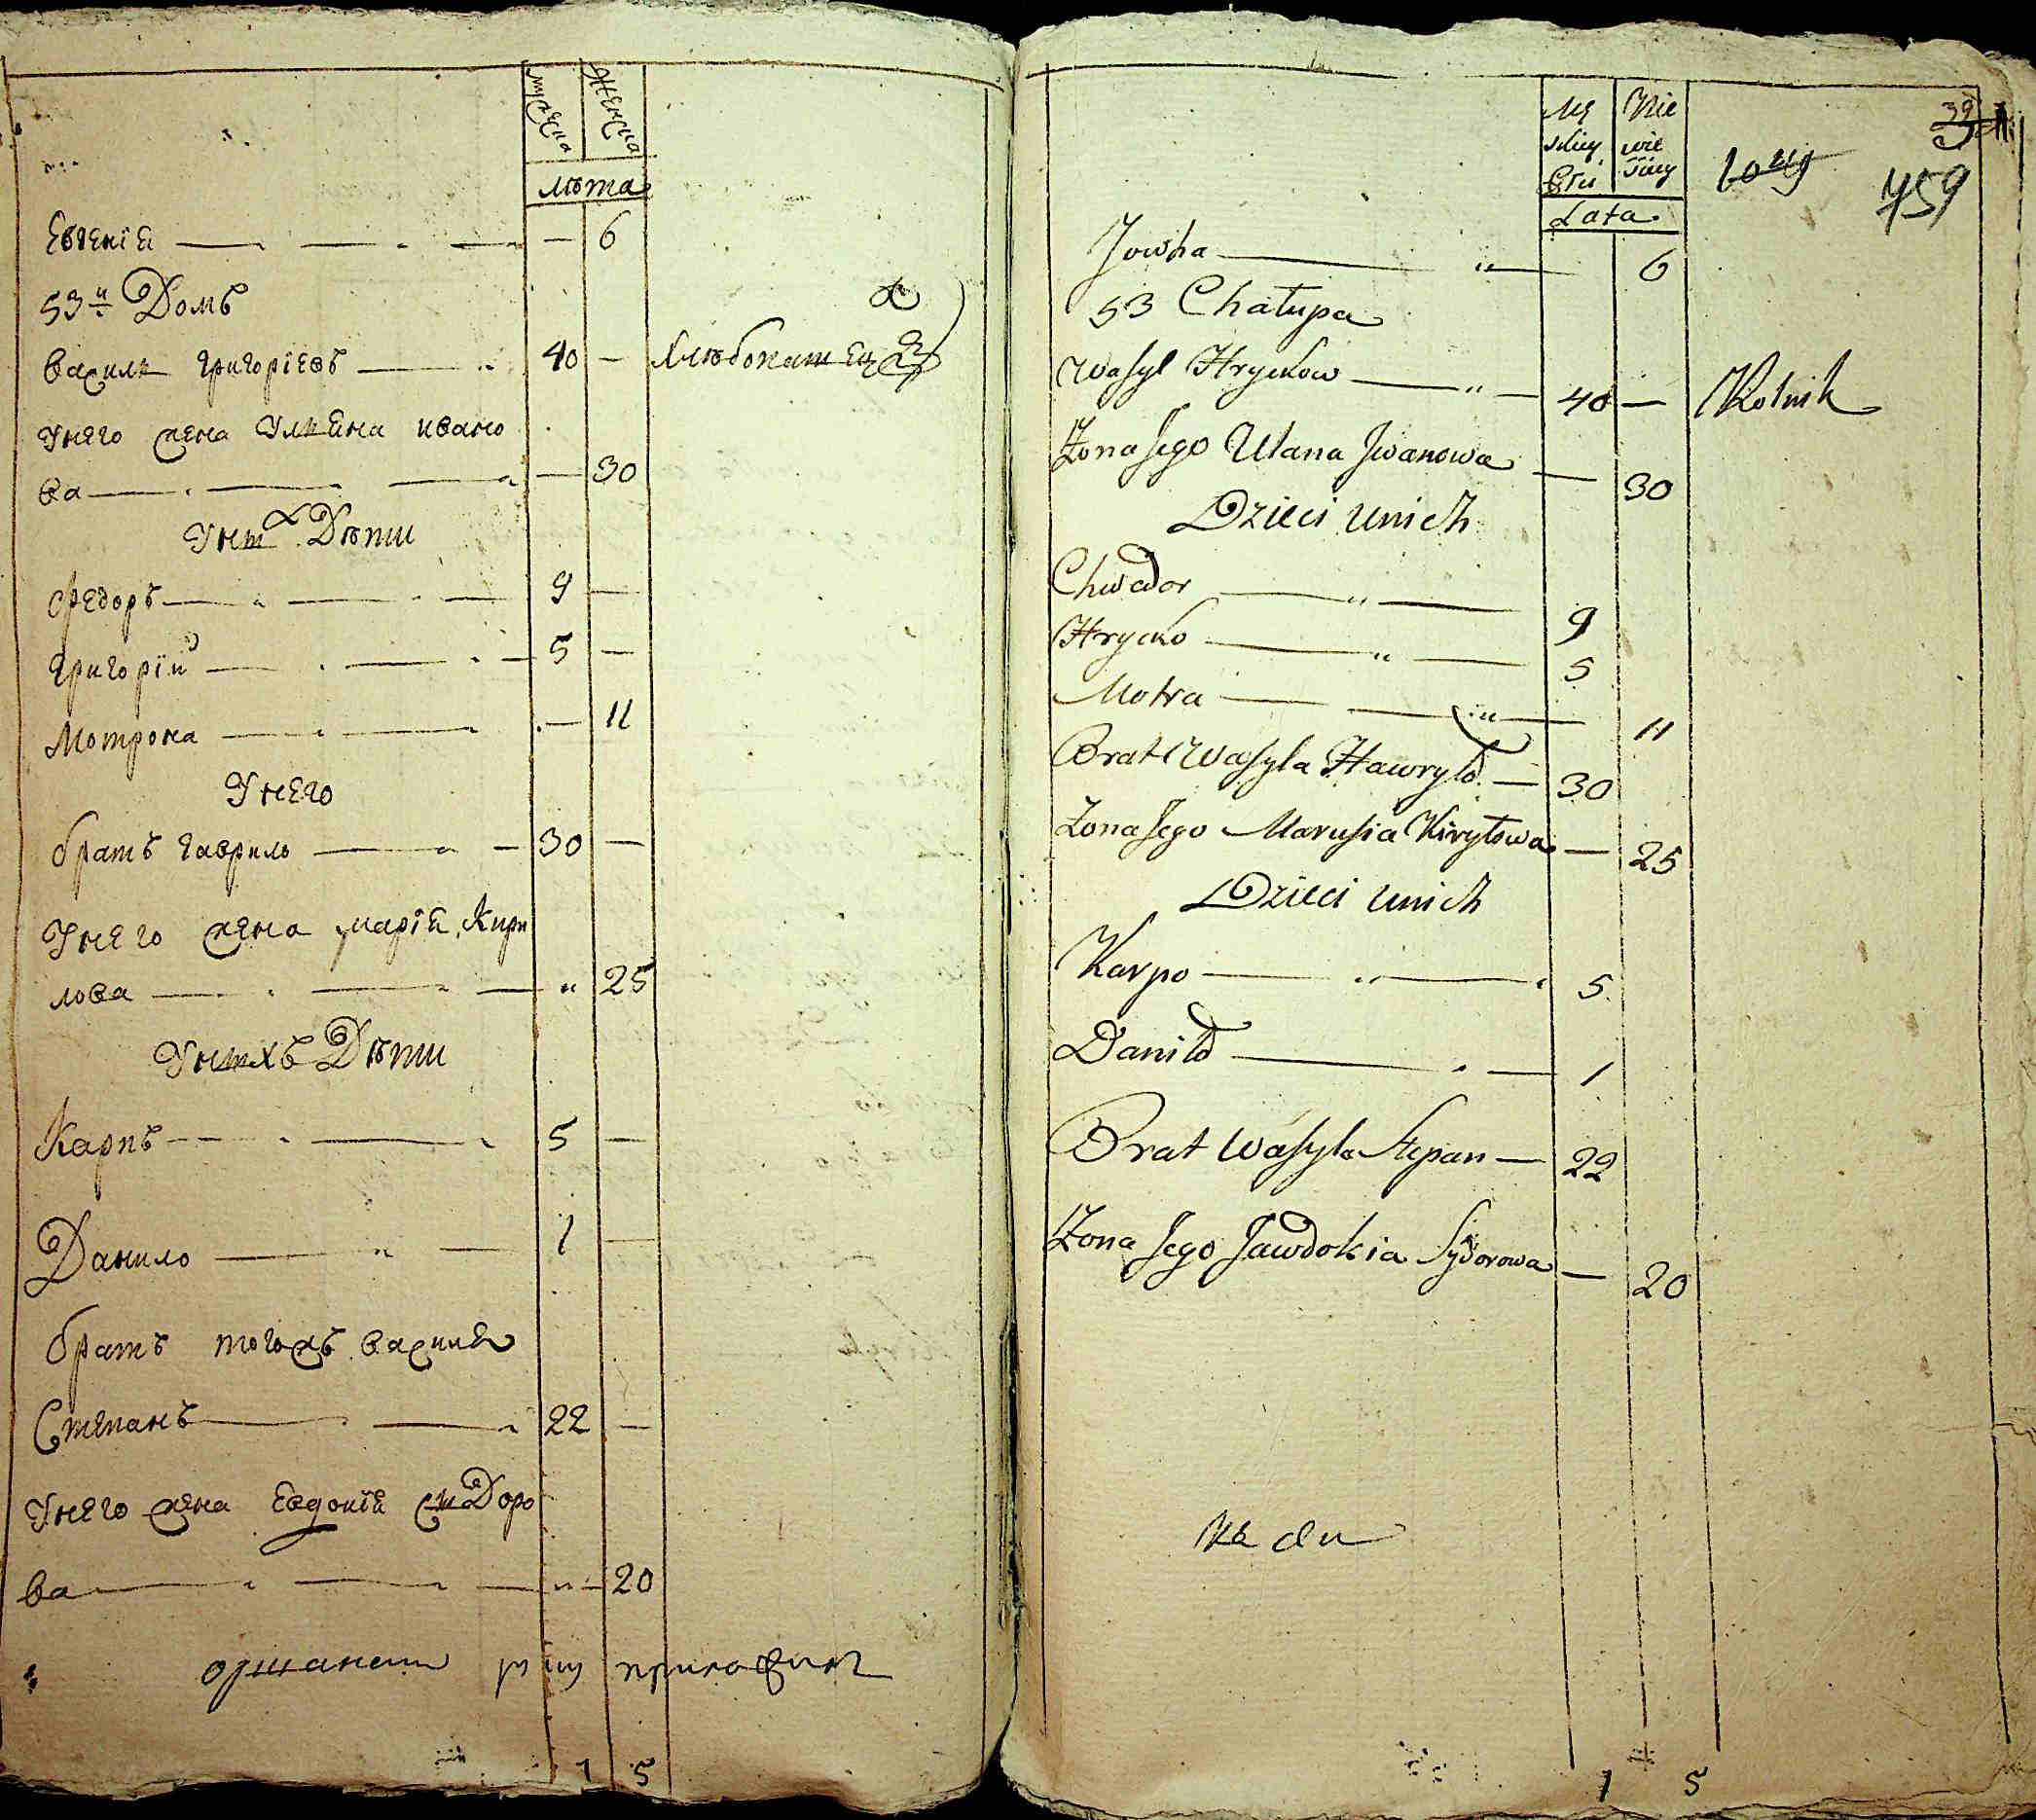 мужеска женска
лѣта
Евгенїа 6
53й Домъ
Василь Григорїевъ 40 Хлѣбопашец
Унего жена Улияна ивано
ва 30
Унихъ Дѣти
Федоръ 9
Григорїй 5
Мотрона 11
Унего
братъ гаврило 30
Унего жена марїя Кири
лова 25
Унихъ Дѣти
Карпъ 5
Данило 1
братъ тогожъ василя
Степанъ 22
Унего жена Евдокїя Сидоро
ва 20
7 5
Mę Nie
skiey wie
Płci ściey
Lata
759
Jowha 6
53 Chałupa
Wasyl Hryckow 40 Rolnik
Żona Jego Ulana Jwanowa 30
Dzieci unich
Chwedor 9
Hrycko 5
Motra 11
Brat Wasyla Hawryło 30
Żona Jego Marusia Kiryłowa 25
Dzieci unich
Karpo 5
Daniło 1
Brat Wasyla Stepan 22
Żona Jego Jawdokia Sydorowa 20
7 5